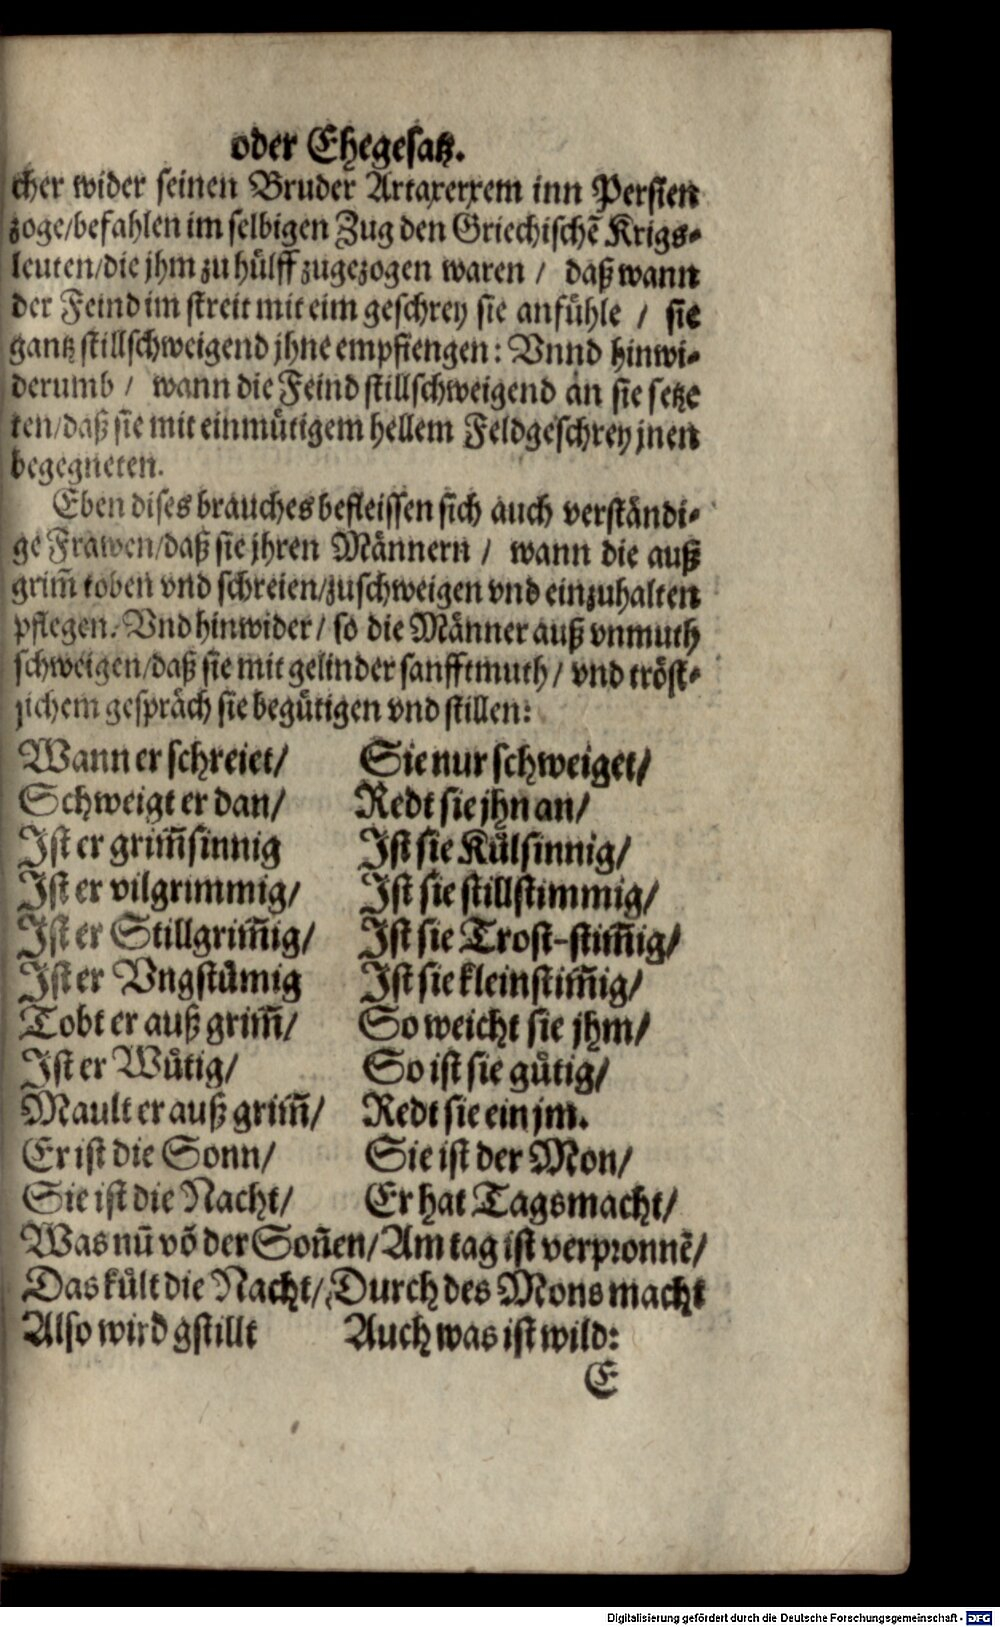 oder Ehegesatz.
cher wider seinen Bruder Artaxerxem inn Persien
zoge/befahlen im selbigen Zug den Griechischē Krigs-
leuten/die jhm zu hülff zugezogen waren / daß wann
der Feind im streit mit eim geschrey sie anfühle / sie
gantz stillschweigend jhne empfiengen: Vnnd hinwi-
derumb / wann die Feind stillschweigend an sie setze
ten/daß sie mit einmütigem hellem Feldgeschrey jnen
begegneten.
Eben dises brauches befleissen sich auch verständi-
ge Frawen/daß sie jhren Männern / wann die auß
grim̄ toben vnd schreien/zuschweigen vnd einzuhalten
pflegen. Vnd hinwider / so die Männer auß vnmuth
schweigen/daß sie mit gelinder sanfftmuth / vnd tröst-
lichem gespräch sie begütigen vnd stillen:
Wann er schreiet/ Sie nur schweiget/
Schweigt er dan/ Redt sie jhn an/
Ist er grim̄sinnig Ist sie Külsinnig/
Ist er vilgrimmig/ Ist sie stillstimmig/
Ist er Stillgrim̄ig/ Ist sie Trost-stim̄ig/
Ist er Vngstümig Ist sie kleinstim̄ig/
Tobt er auß grim̄/ So weicht sie jhm/
Ist er Wütig/ So ist sie gütig/
Mault er auß grim̄/ Redt sie ein jm.
Er ist die Sonn/ Sie ist der Mon/
Sie ist die Nacht/ Er hat Tagsmacht/
Was nū vō der Soñen/Am tag ist verpronnē/
Das kült die Nacht/Durch des Mons macht
Also wird gstillt Auch was ist wild:
E
Digitalisierung gefördert durch die Deutsche Forschungsgemeinschaft - DFG